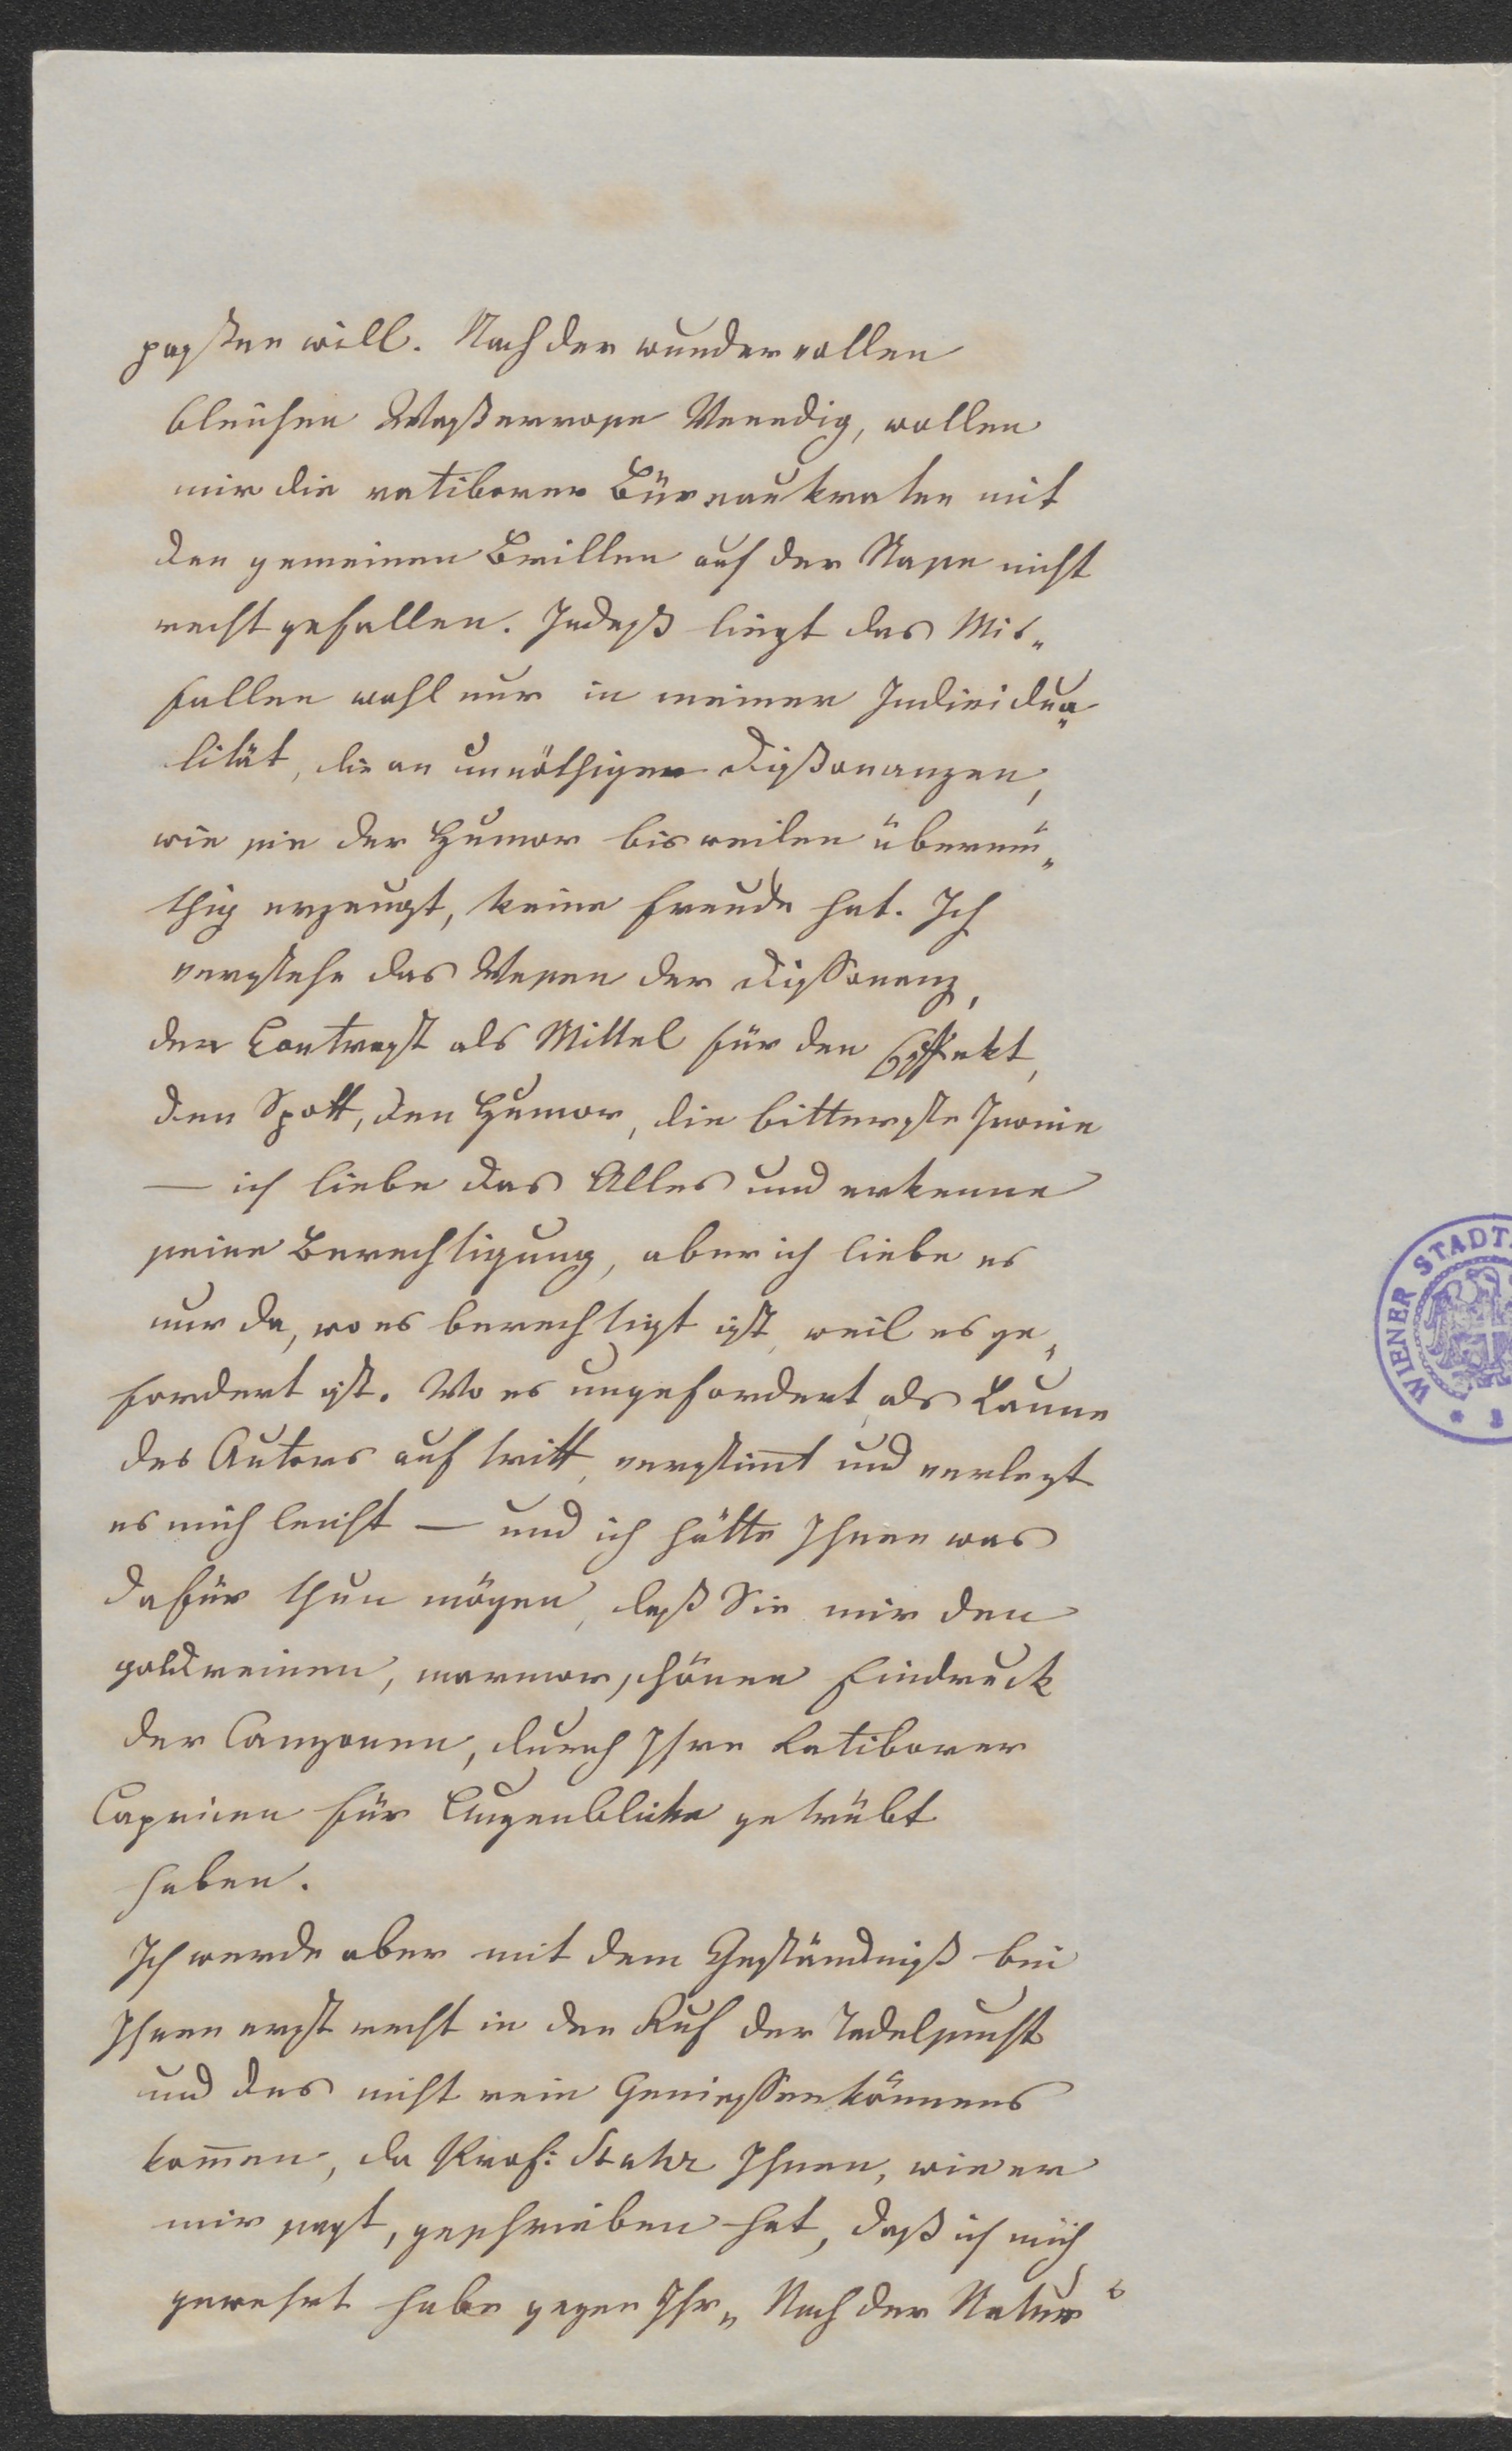 paßen will. Nach der wundervollen
bleichen Waßerrose Venedig, wollen
mir die ratiborer Büreaukraten mit
den gemeinen Brillen auf der Nase nicht
recht gefallen. Indeß liegt das Mis„
fallen wohl nur in meiner Individua„
lität, die an unnöthigen Dißonanzen,
wie sie der Humor bisweilen übermü„
thig erzeugt, keine Freude hat. Ich
verstehe das Wesen der Dissonanz,
den Contrast als Mittel für den Effekt,
den Spott, den Humor, die bitterste Ironie
— ich liebe das Alles und erkenne
seine Berechtigung, aber ich liebe es
nur da, wo es berechtigt ist, weil es ge„
fordert ist. Wo es ungefordert, als Laune
des Autors auftritt, verstim̄t und verlezt
es mich leicht — und ich hätte Ihnen was
dafür thun mögen, daß Sie mir den
goldreinen, marmorschönen Eindruck
der Canzonen, durch Ihre Ratiborer
Capricen für Augenblicke getrübt
haben.
Ich werde aber mit dem Geständniß bei
Ihnen erst recht in den Ruf der Tadelsucht
und des nicht rein Geniessenkönnens
kom̄en, da Prof: Stahr Ihnen, wie er
mir sagt, geschrieben hat, daß ich mich
gewehrt habe gegen Ihr „Nach der Natur“
WIENER STADT